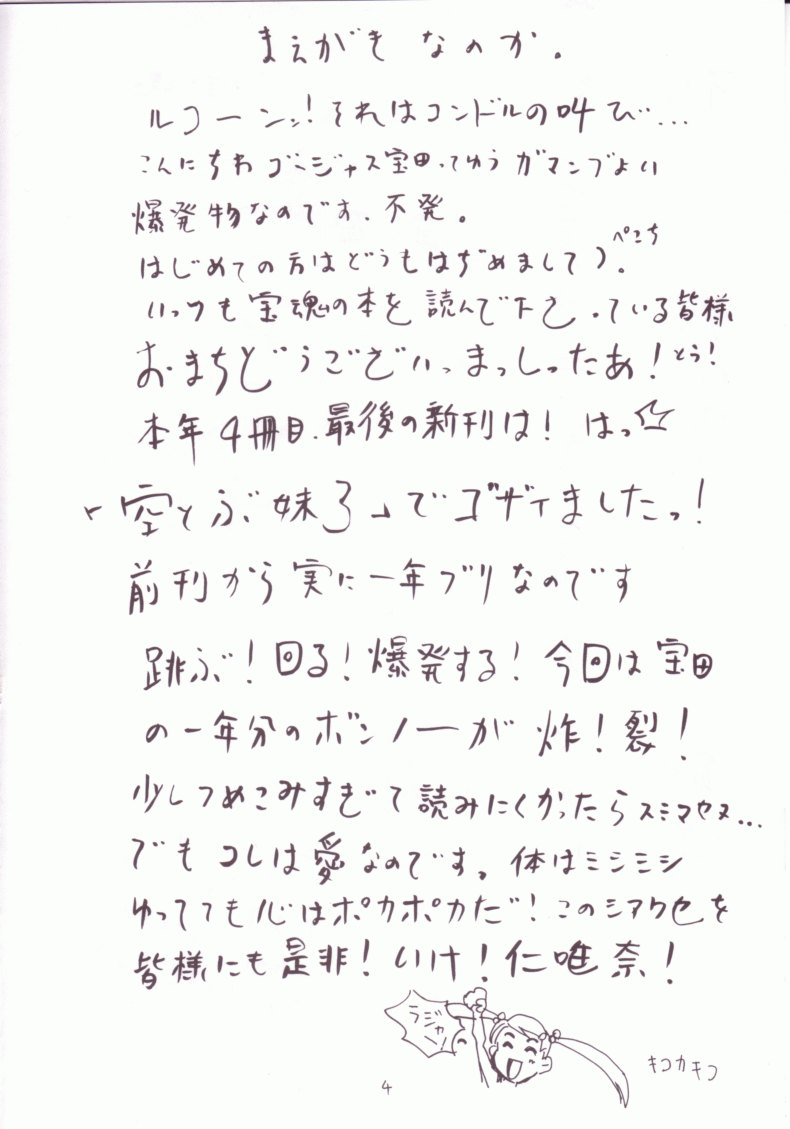 まえがきなのか。
ルコーンッ!それはコンドルの叫び…
こんにちわ ゴージャス宝田ってゆうガマンヅよい
爆発物なのです、不発。
はじめての方はどうもはぢめまして)。ぺこち
いっつも宝魂の本を読んで下さっている皆様
おまちどうございっまっしったあ!とう!
本年4冊目、最後の新刊は!はっ☆
「空とぶ妹3」でゴザイましたっ!
前刊から実に一年ブリなのです
跳ぶ!回る!爆発する!今回は宝田
の一年分のボンノーが炸!裂!
少しつめこみすぎて読みにくかったらスミマセヌ…
でもコレは愛なのです。体はミシミシ
ゆってても心はポカポカだ!このシアワセを
皆様にも是非!いけ!仁唯奈!
ラジャー!
キコカキコ
4